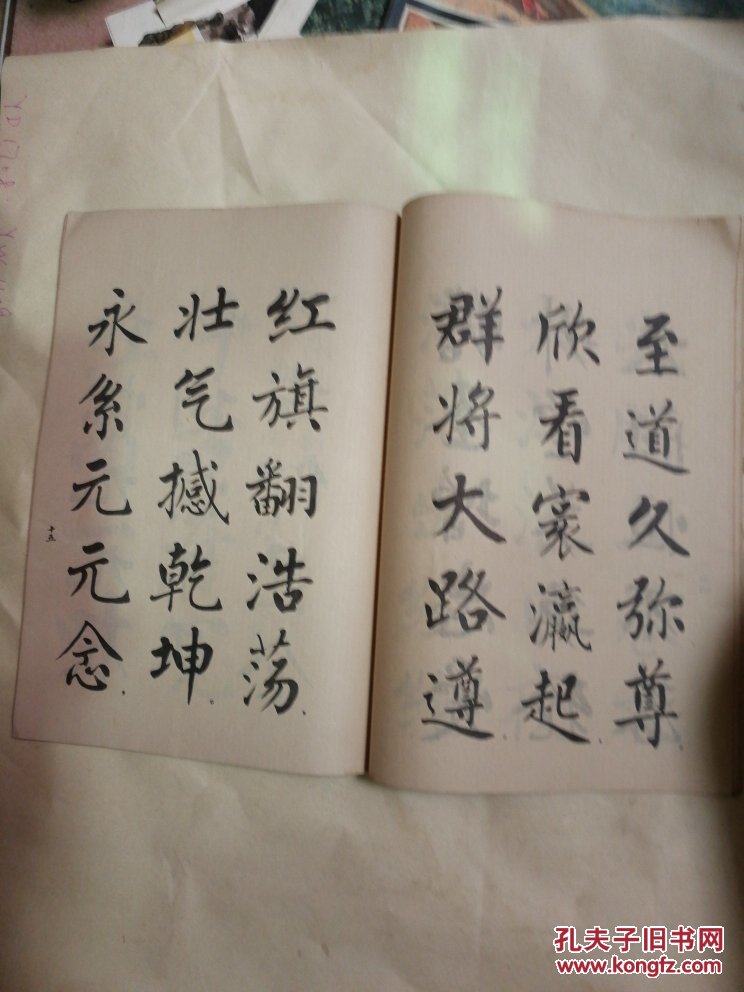 至道久弥尊
欣看寰瀛起
群将大路遵
红旗翻浩荡
壮气撼乾坤
永系元元念
十五
孔夫子旧书网
www.kongfz.com